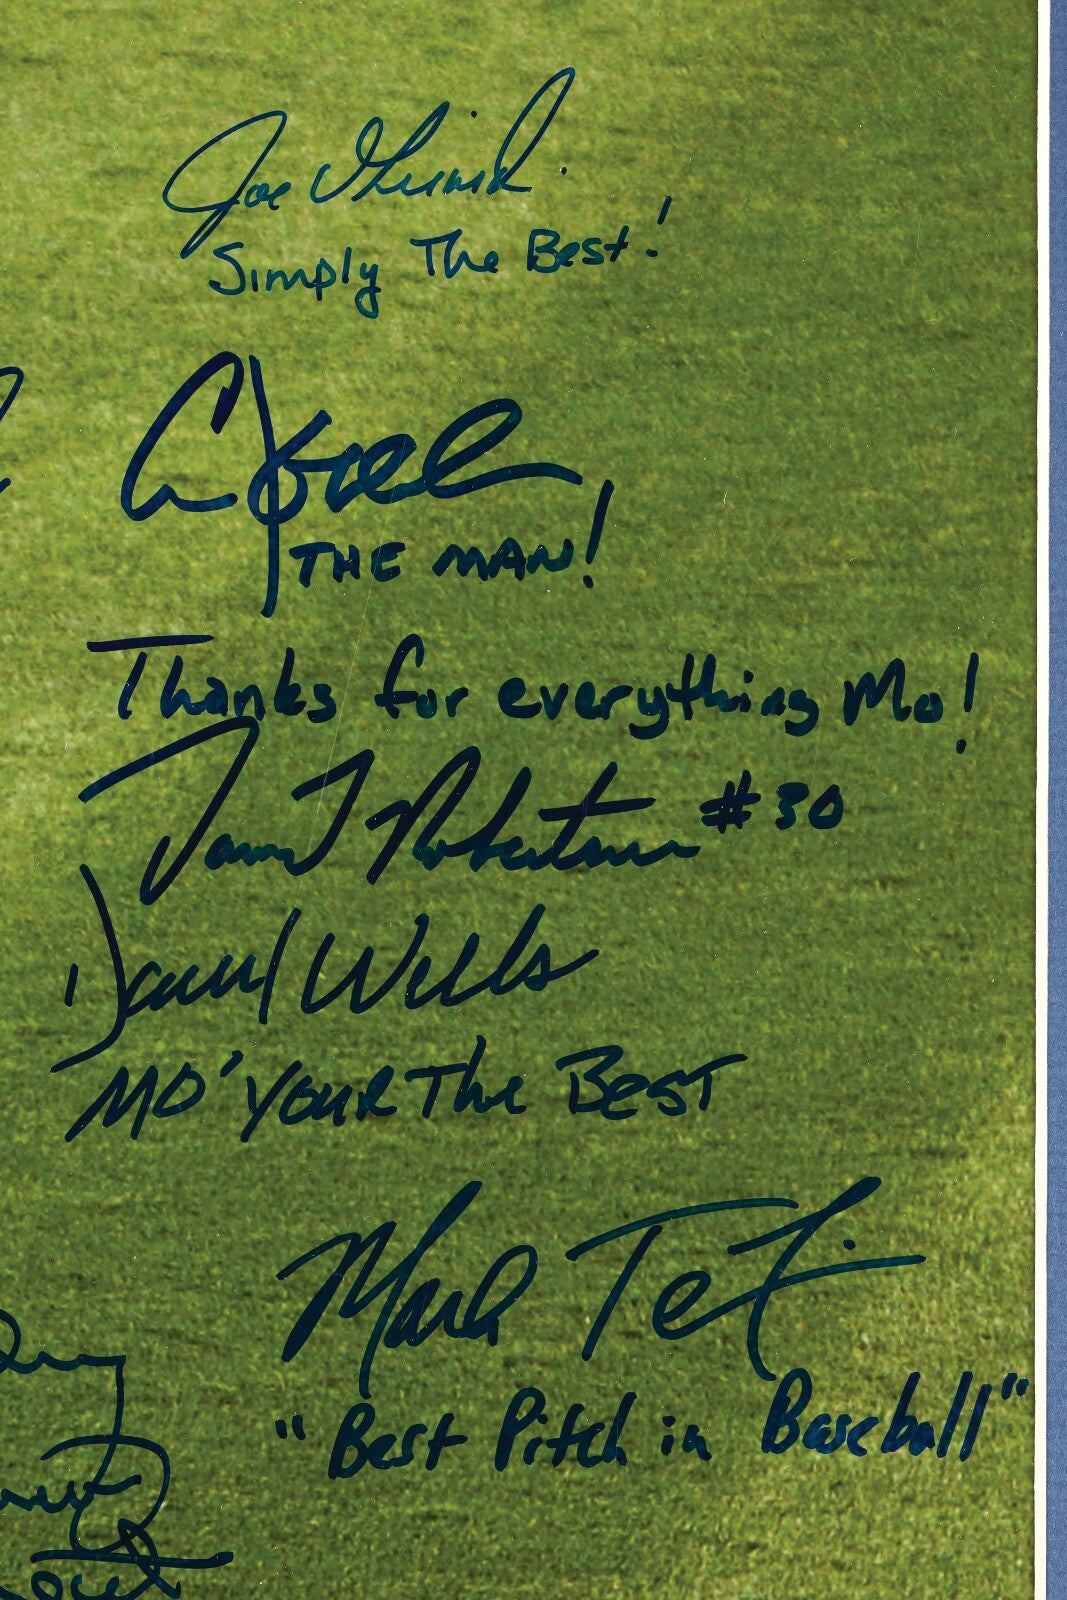 Joe Girardi
Simply The Best!
THE MAN!
Thanks for everything Mo!
David Robertson #30
David Wells
MO' YOUR The BesT
Mark Tei
"Best Pitch in Baseball"